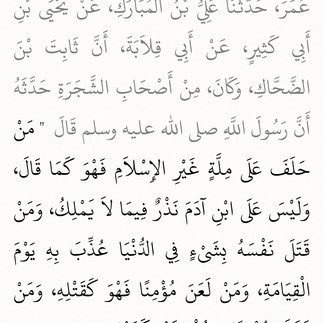 عُمَرَ، حَدَّثَنَا عَلِيُّ بْنُ الْمُبَارَكِ، عَنْ يَحْيَى بْنِ
أَبِي كَثِيرٍ، عَنْ أَبِي قِلاَبَةَ، أَنَّ ثَابِتَ بْنَ
الضَّحَّاكِ، وَكَانَ، مِنْ أَصْحَابِ الشَّجَرَةِ حَدَّثَهُ
أَنَّ رَسُولَ اللَّهِ صلى الله عليه وسلم قَالَ ‏"‏ مَنْ
حَلَفَ عَلَى مِلَّةٍ غَيْرِ الإِسْلاَمِ فَهْوَ كَمَا قَالَ،
وَلَيْسَ عَلَى ابْنِ آدَمَ نَذْرٌ فِيمَا لاَ يَمْلِكُ، وَمَنْ
قَتَلَ نَفْسَهُ بِشَىْءٍ فِي الدُّنْيَا عُذِّبَ بِهِ يَوْمَ
الْقِيَامَةِ، وَمَنْ لَعَنَ مُؤْمِنًا فَهْوَ كَقَتْلِهِ، وَمَنْ